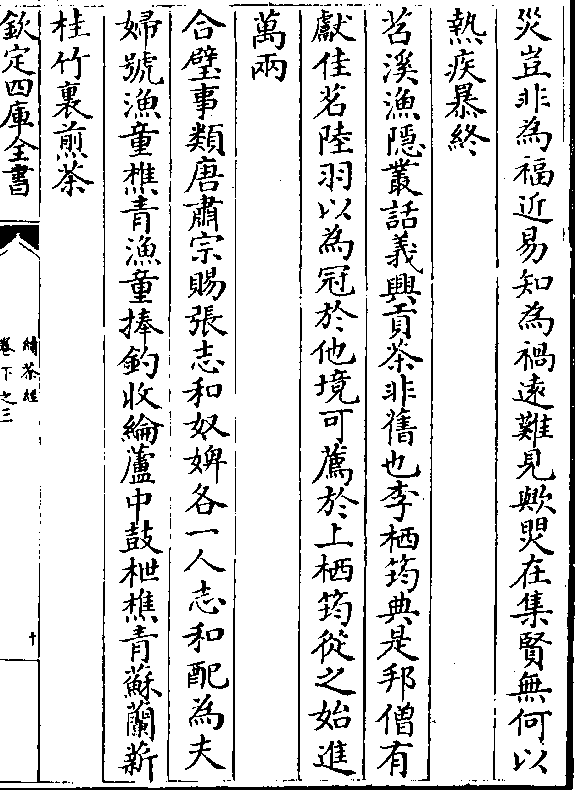 災豈非為福近易知為禍遠難見歟煚在集賢無何以
熱疾暴終
苕溪漁隱叢話義興貢茶非舊也李栖筠典是邦僧有
獻佳茗陸羽以為冠於他境可薦於上栖筠從之始進
萬兩
合璧事類唐肅宗賜張志和奴婢各一人志和配為夫
婦號漁童樵青漁童捧釣收綸蘆中鼓枻樵青蘇蘭薪
桂竹裏煎茶
欽定四庫全書
續茶經
卷下之三
十